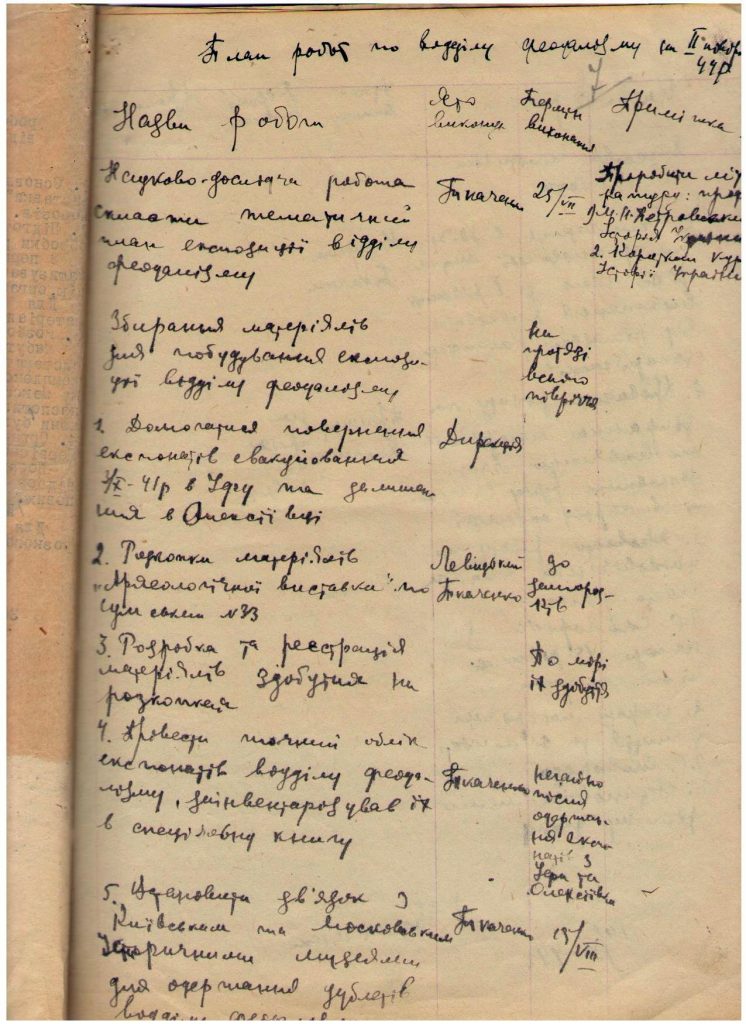 План робот по відділу феодалізму на II
44р
Назви роботи
Хто
виконує
Термін
виконання
Примітка
Науково-дослідча робота
скласти тематичний
план експозиції відділу
феодалізму
Ткаченко
25/VII
Проробити
1) М.Н. Петровський
Історія України
2. Короткий курс
Історії України
Збирання матеріялів
для побудування експози-
ції відділу феодалізму
на
протязі
всього
півріччя
1. Домогатися повернення
експонатів евакуйованих
/IX-41р в Уфу та залишен
ния в Олексіївці
Дирекція
2. Розкопки матеріялів
"Археологічної виставки" по
Сумській N33
Левицький
Ткаченко
до
замороз-
ків
3. Розробка та реєстрація
матеріялів здобутих на
розкопках
По мірі
їх здобуття
4. Провести точний облік
експонатів відділу феода-
лізму, заінвентаризував їх
в спеціальну книгу
Ткаченко
негайно
після
одержан-
ня експо
натів з
Уфи та
Олексіївки
5. Установити зв'язок з
Київським та Московським
Історичними музеями
для одержання дублетів
відділу
Ткаченко
15/VIII